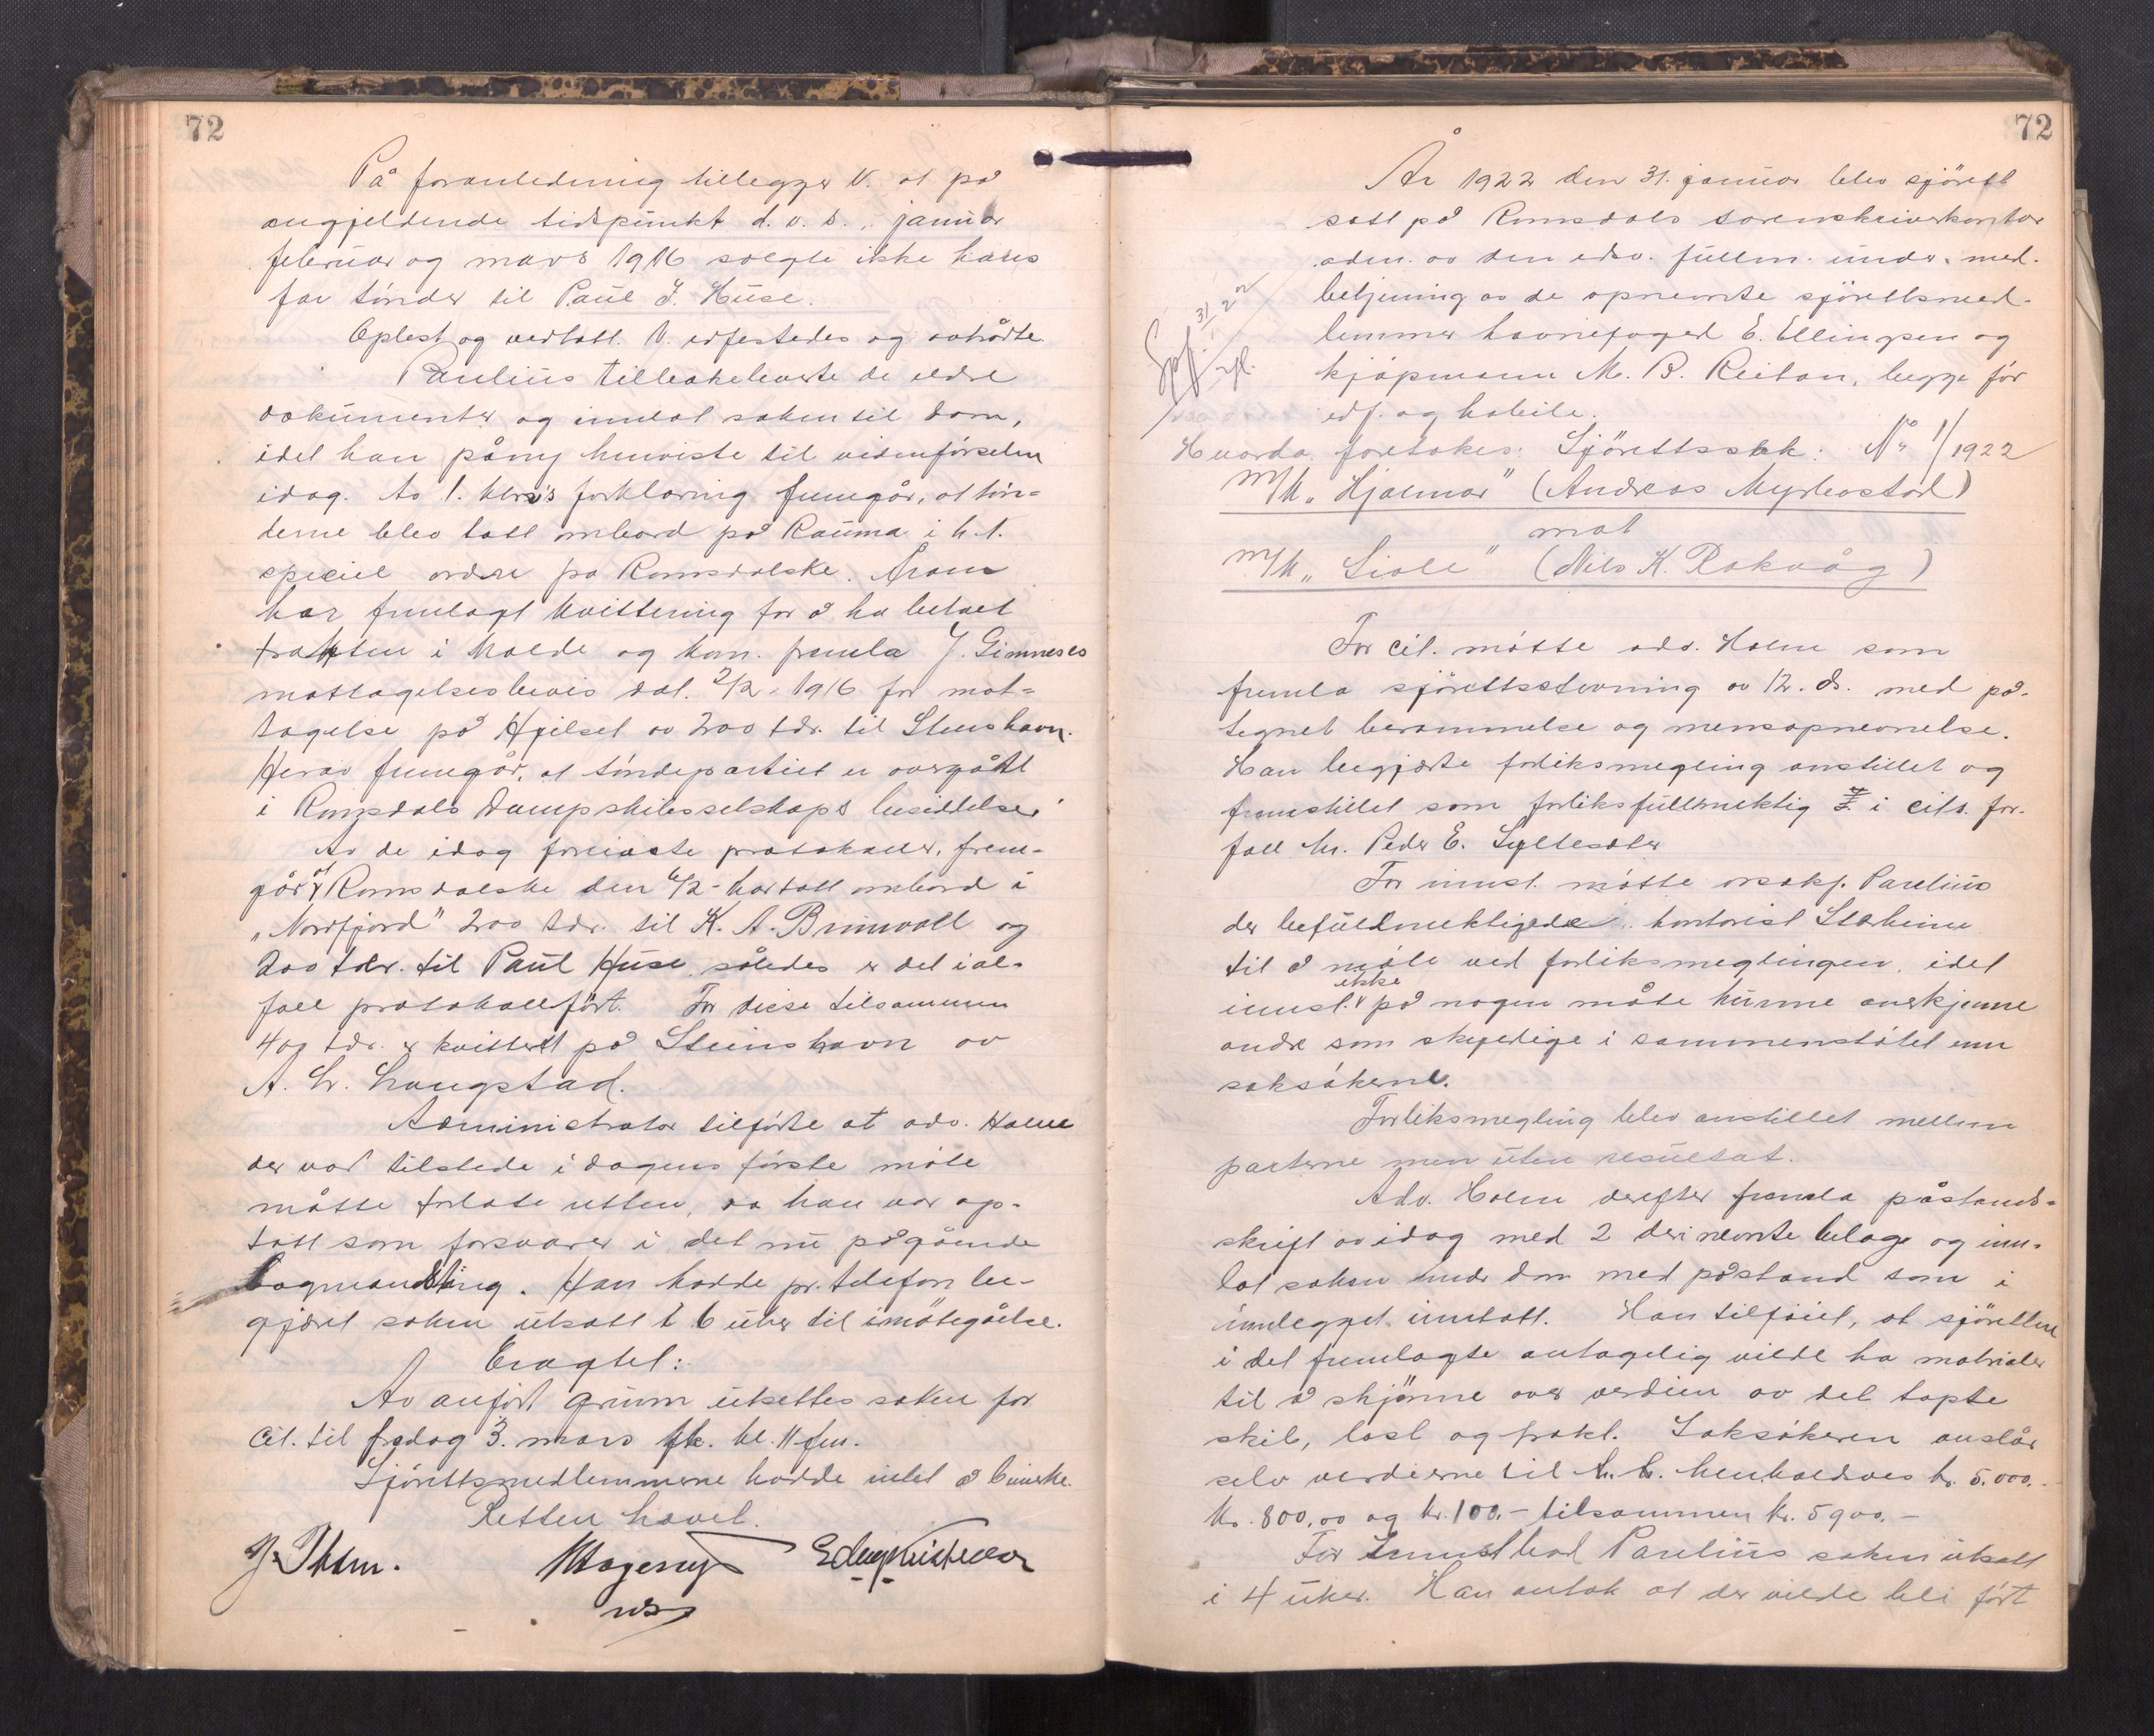 72
På foranledning tillegger V. at på
angjeldende tidspunkt d. v. s. januar
februar og mars 1916 solgte ikke hans
far tönder til Paul J. Huse.
Oplest og vedtatt. V. edfestedes og avtrådte.
Paulius tilbakeleverte de eldre
dokumenter og innlot saken til dom,
idet han påny henviste til vidneförselen
idag. Av 1. forklaring fremgår, at tön-
derne blev tatt ombord på Rauma i h. t.
speciel ordre fra Romsdalske. Aram
har fremlagt kvittering for å ha betalt
frakten i Molde og fremla J. Gimneses
mottagelsesbevis dat. 2/2 - 1916 for mot-
tagelse på Hjelset av 200 tdr. til Stenshavn.
Herav fremgår, at töndepartiet er overgått
i Romsdals Dampskibsselskaps besiddelse.
Av de idag foreviste protokoller, frem-
går at Romsdalske den 6/2 - har tatt ombord i
"Nordfjord" 200 tdr. til K. A. Brinvoll og
200 tdr. til Paul Huse, således er det ial-
fall protokollfört. For disse tilsammen
400 tdr. er kvittert på Steinshavn av
A. Langstad.
Administrator tilförte at adv. Holm
der var tilstede i dagens förste möte
måtte forlate retten, da han var op-
tatt som forsvarer i det nu pågående
lagmandsting. Han hadde pr. telefon be-
gjært saken utsatt i 6 uker til imötegåelse.
Eragtet:
Av anfört grunn utsettes saken for
Cit. til fredag 3. mars fk. kl. 11 fm.
Sjörettsmedlemmerne hadde intet å bemerke.
Retten hævet.
72
År 1922 den 31. januar blev sjörett
satt på Romsdals sorenskriverkontor
adm. av den edsv. fullm. under med-
betjening av de opnevnte sjörettsmed-
lemmer havnefoged E. Ellingsen og
kjöpmann M. B. Reitan, begge för
edf. og habile.
Hvorda foretokes: Sjörettssak: No 1/1922
M/K "Hjalmar" (Andreas Myrbostad)
mot
M/K "Liole" (Nils K. Rokvåg)
For cit. mötte adv. Holm som
fremla sjörettsstevning av 12. ds. med på-
tegnet berammelse og mensopnevnelse.
Han begjærte forliksmegling anstillet og
fremstillet som forliksfullmektig i cits. for-
fall hr. Peder E. Syltesæter
For innst. mötte orsakf. Paulius
der befuldmektigede kontorist Storheim
til å möte ved forliksmeglingen, idet
innst. ikke på nogen måte kunne anerkjenne
andre som skyldige i sammenstötet enn
saksökerne.
Forliksmegling blev anstillet mellem
parterne men uten resultat.
Adv. Holm derefter fremla påstands-
skrift av idag med 2 deri nevnte bilage og inn-
lot saken under dom med påstand som i
innlegget inntatt. Han tilföiet, at sjöretten
i det fremlagte antagelig vilde ha matrialer
til å skjönne over verdien av det tapte
skib, last og frakt. Saksökeren anslår
selv verdierne til henholdsvis kr. 5.000.-
kr. 800,00 og kr. 100.- tilsammen kr. 5900.-
For innst. bad Paulius saken utsatt
i 4 uker. Han antok at der vilde bli fört